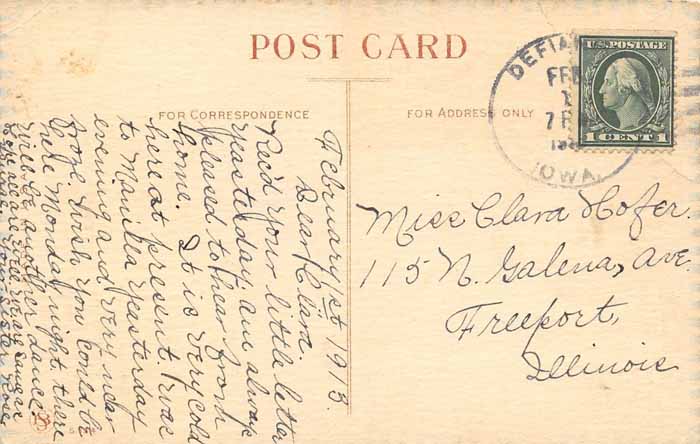 POST CARD
FOR CORRESPONDENCE
FOR ADDRESS ONLY
DEFIAN
FEB
1
7 P
191
IOWA.
U.S. POSTAGE
1 CENT 1
Miss Clara Hofer.
115 N. Galena, Ave.
Freeport,
Illinois
February 1st 1913.
Dear Clara.
Rec'd your little letter
yesterday am always
pleased to hear from
home. It is very cold
here at present. I was
to Manilla yesterday
evening and very near
froze. wish you could be
here Monday night. there
will be another dance.